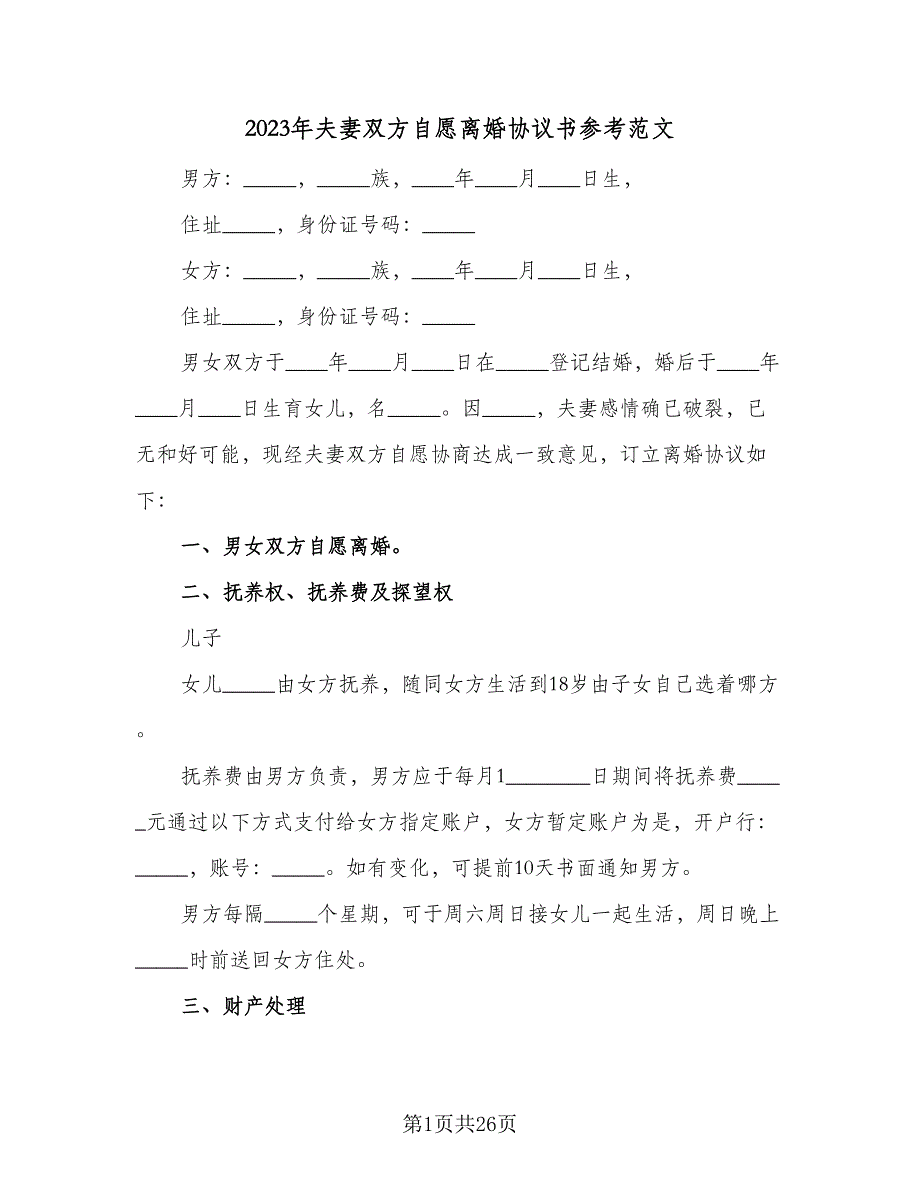 2023年夫妻双方自愿离婚协议书参考范文
男方：_____，_____族，____年____月____日生，
住址_____，身份证号码：_____
女方：_____，_____族，____年____月____日生，
住址_____，身份证号码：_____
男女双方于____年____月____日在_____登记结婚，婚后于____年
____月____日生育女儿，名_____。因_____，夫妻感情确已破裂，已
无和好可能，现经夫妻双方自愿协商达成一致意见，订立离婚协议如
下：
一、男女双方自愿离婚。
二、抚养权、抚养费及探望权
儿子
女儿_____由女方抚养，随同女方生活到18岁由子女自己选着哪方
。
抚养费由男方负责，男方应于每月1________日期间将抚养费____
_元通过以下方式支付给女方指定账户，女方暂定账户为是，开户行：
_____，账号：_____。如有变化，可提前10天书面通知男方。
男方每隔_____个星期，可于周六周日接女儿一起生活，周日晚上
_____时前送回女方住处。
三、财产处理
第1页共26页